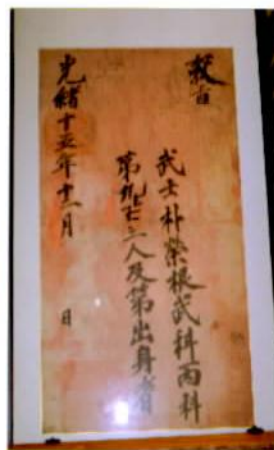 敎旨
武士朴榮根武科丙科
第 人及第出身者
光緖十五年十二月 日